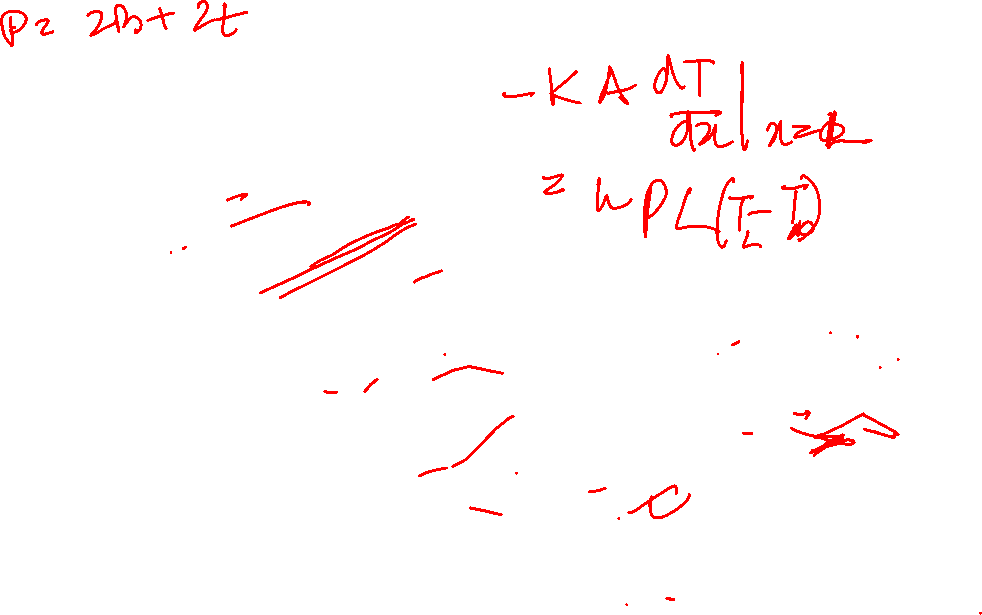 P = 2B + 2t
-KA dT/dx | x=L
= h P L (T_L - T_∞)